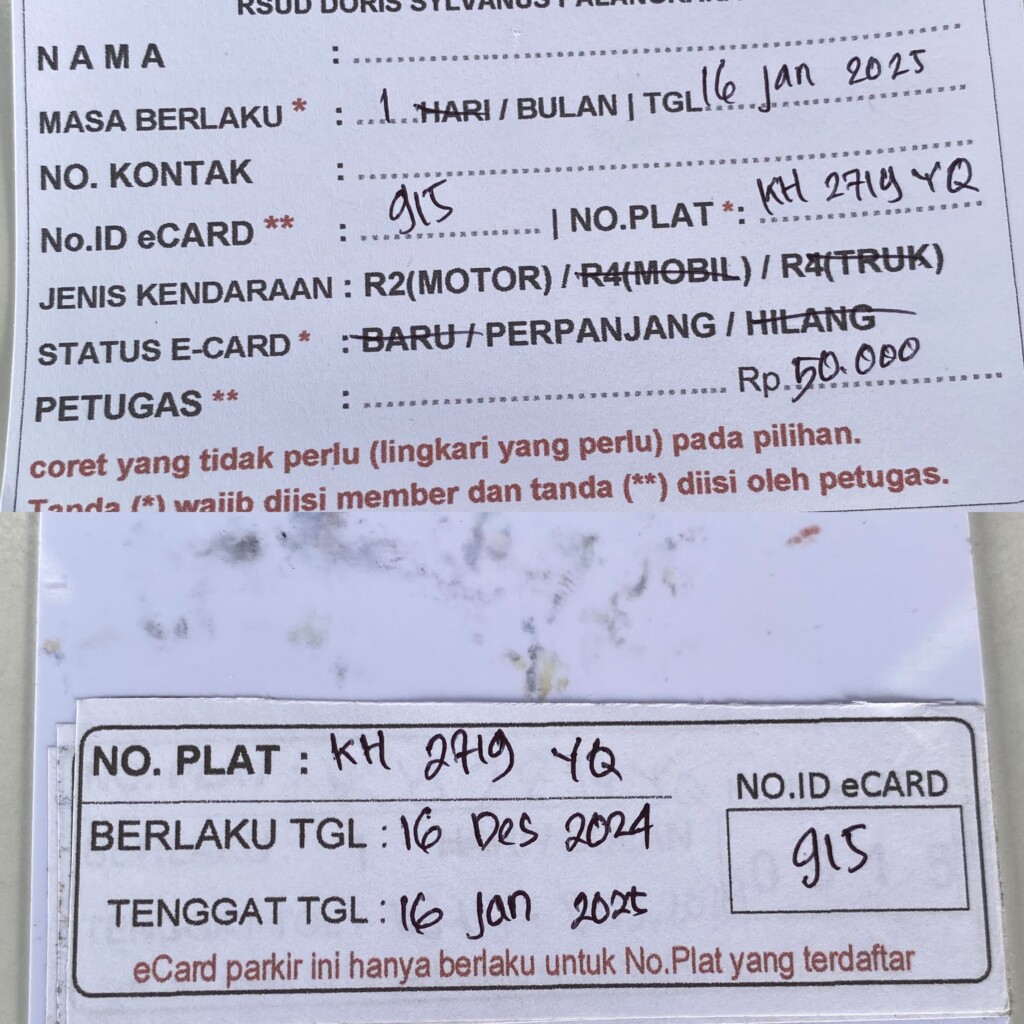 RSUD DORIS SYLVANUS PALANGKARAYA
N A M A :
MASA BERLAKU * : 1 HARI / BULAN | TGL 16 Jan 2025
NO. KONTAK :
No.ID eCARD ** : 915 | NO.PLAT *: KH 2719 YQ
JENIS KENDARAAN : R2(MOTOR) / R4(MOBIL) / R4(TRUK)
STATUS E-CARD * : BARU / PERPANJANG / HILANG
PETUGAS ** : Rp. 50.000
coret yang tidak perlu (lingkari yang perlu) pada pilihan.
Tanda (*) wajib diisi member dan tanda (**) diisi oleh petugas.
NO. PLAT : KH 2719 YQ
NO.ID eCARD
915
BERLAKU TGL : 16 Des 2024
TENGGAT TGL : 16 Jan 2025
eCard parkir ini hanya berlaku untuk No.Plat yang terdaftar